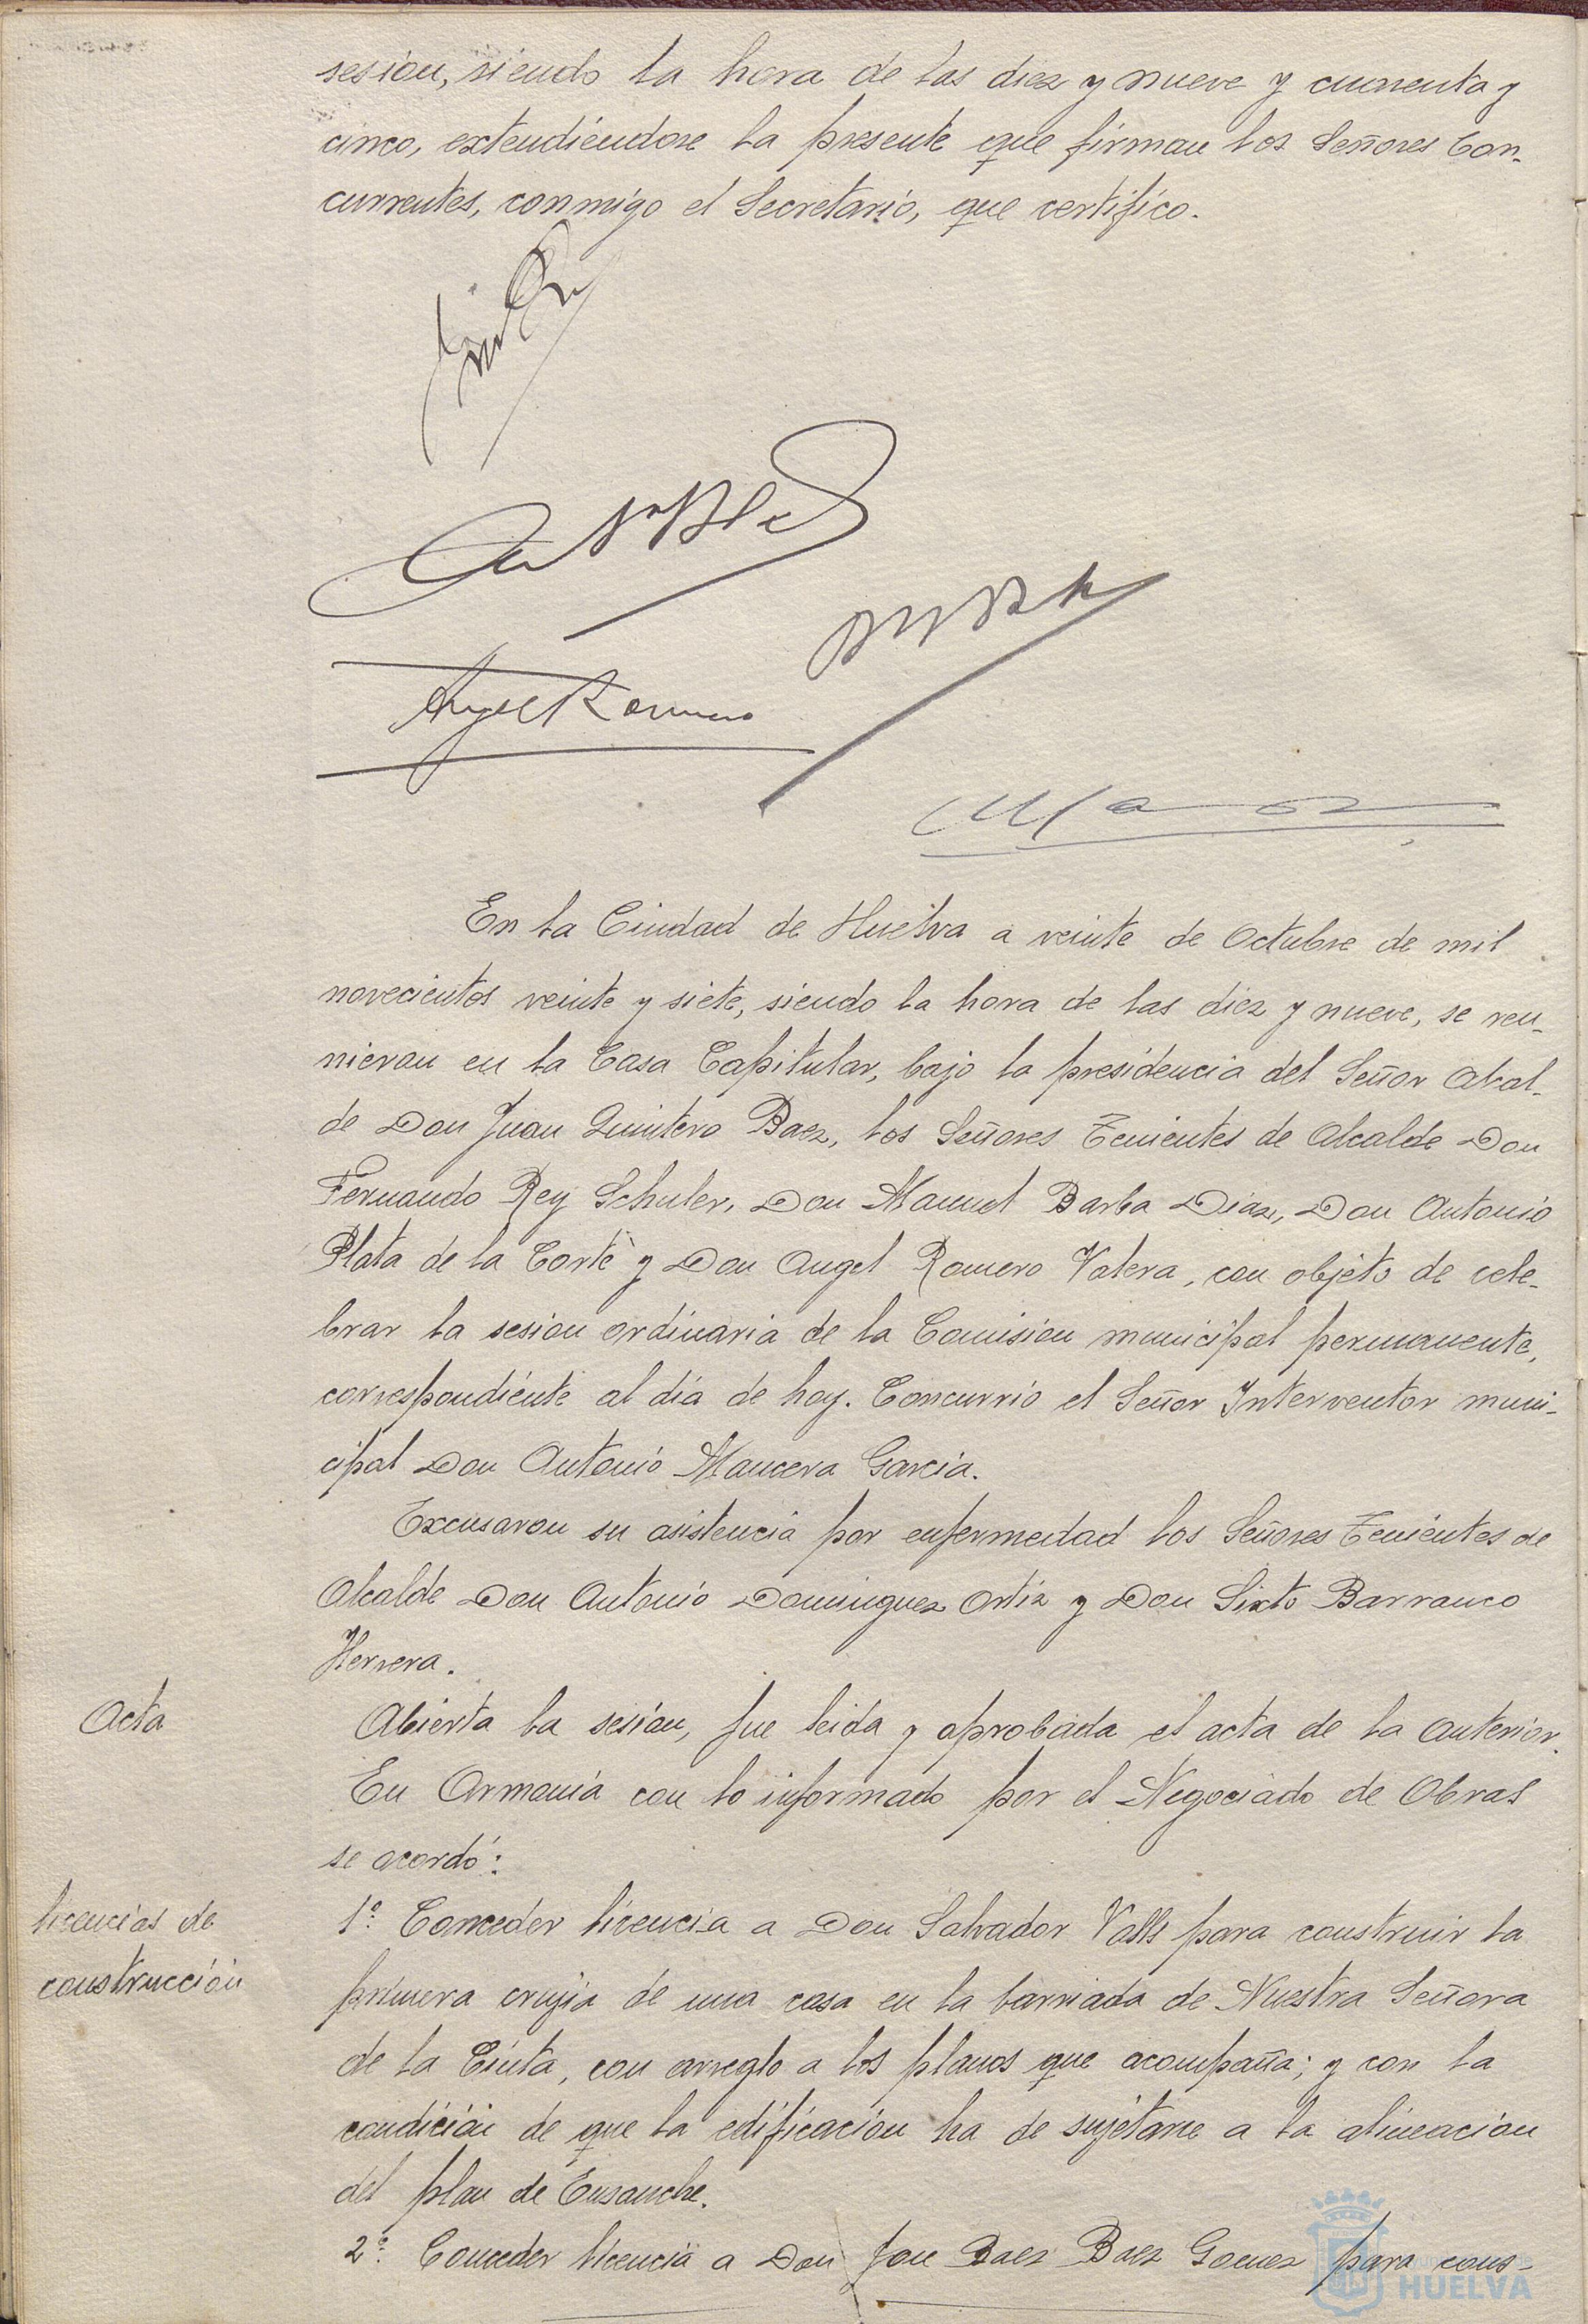 sesion, siendo la hora de las diez y nueve y cuarenta y
cinco, extendiéndose la presente que firman los Señores Con-
currentes, conmigo el Secretario, que certifico.
Angel Romero
En la Ciudad de Huelva a veinte de Octubre de mil
novecientos veinte y siete, siendo la hora de las diez y nueve, se reu-
nieron en la Casa Capitular, bajo la presidencia del Señor Alcal-
de Don Juan Quintero Baez, los Señores Tenientes de Alcalde Don
Fernando Rey Schuler, Don Manuel Barba Diaz, Don Antonio
Plata de la Corte y Don Angel Romero Valera, con objeto de cele-
brar la sesion ordinaria de la Comision municipal permanente,
correspondiente al día de hoy. Concurrio el Señor Interventor muni-
cipal Don Antonio Mancera Garcia.
Excusaron su asistencia por enfermedad los Señores Tenientes de
Alcalde Don Antonio Dominguez Ortiz y Don Sixto Barranco
Herrera.
Acta
Abierta la sesion, fue leida y aprobada el acta de la anterior.
En Armonia con lo informado por el Negociado de Obras
se acordó:
licencias de
construcción
1º. Conceder licencia a Don Salvador Valls para construir la
primera crujia de una casa en la barriada de Nuestra Señora
de la Cinta, con arreglo a los planos que acompaña; y con la
condición de que la edificacion ha de sujetarse a la alineacion
del plan de Ensanche.
2º. Conceder licencia a Don Jose Baez Baez Gomez para cons-
HUELVA